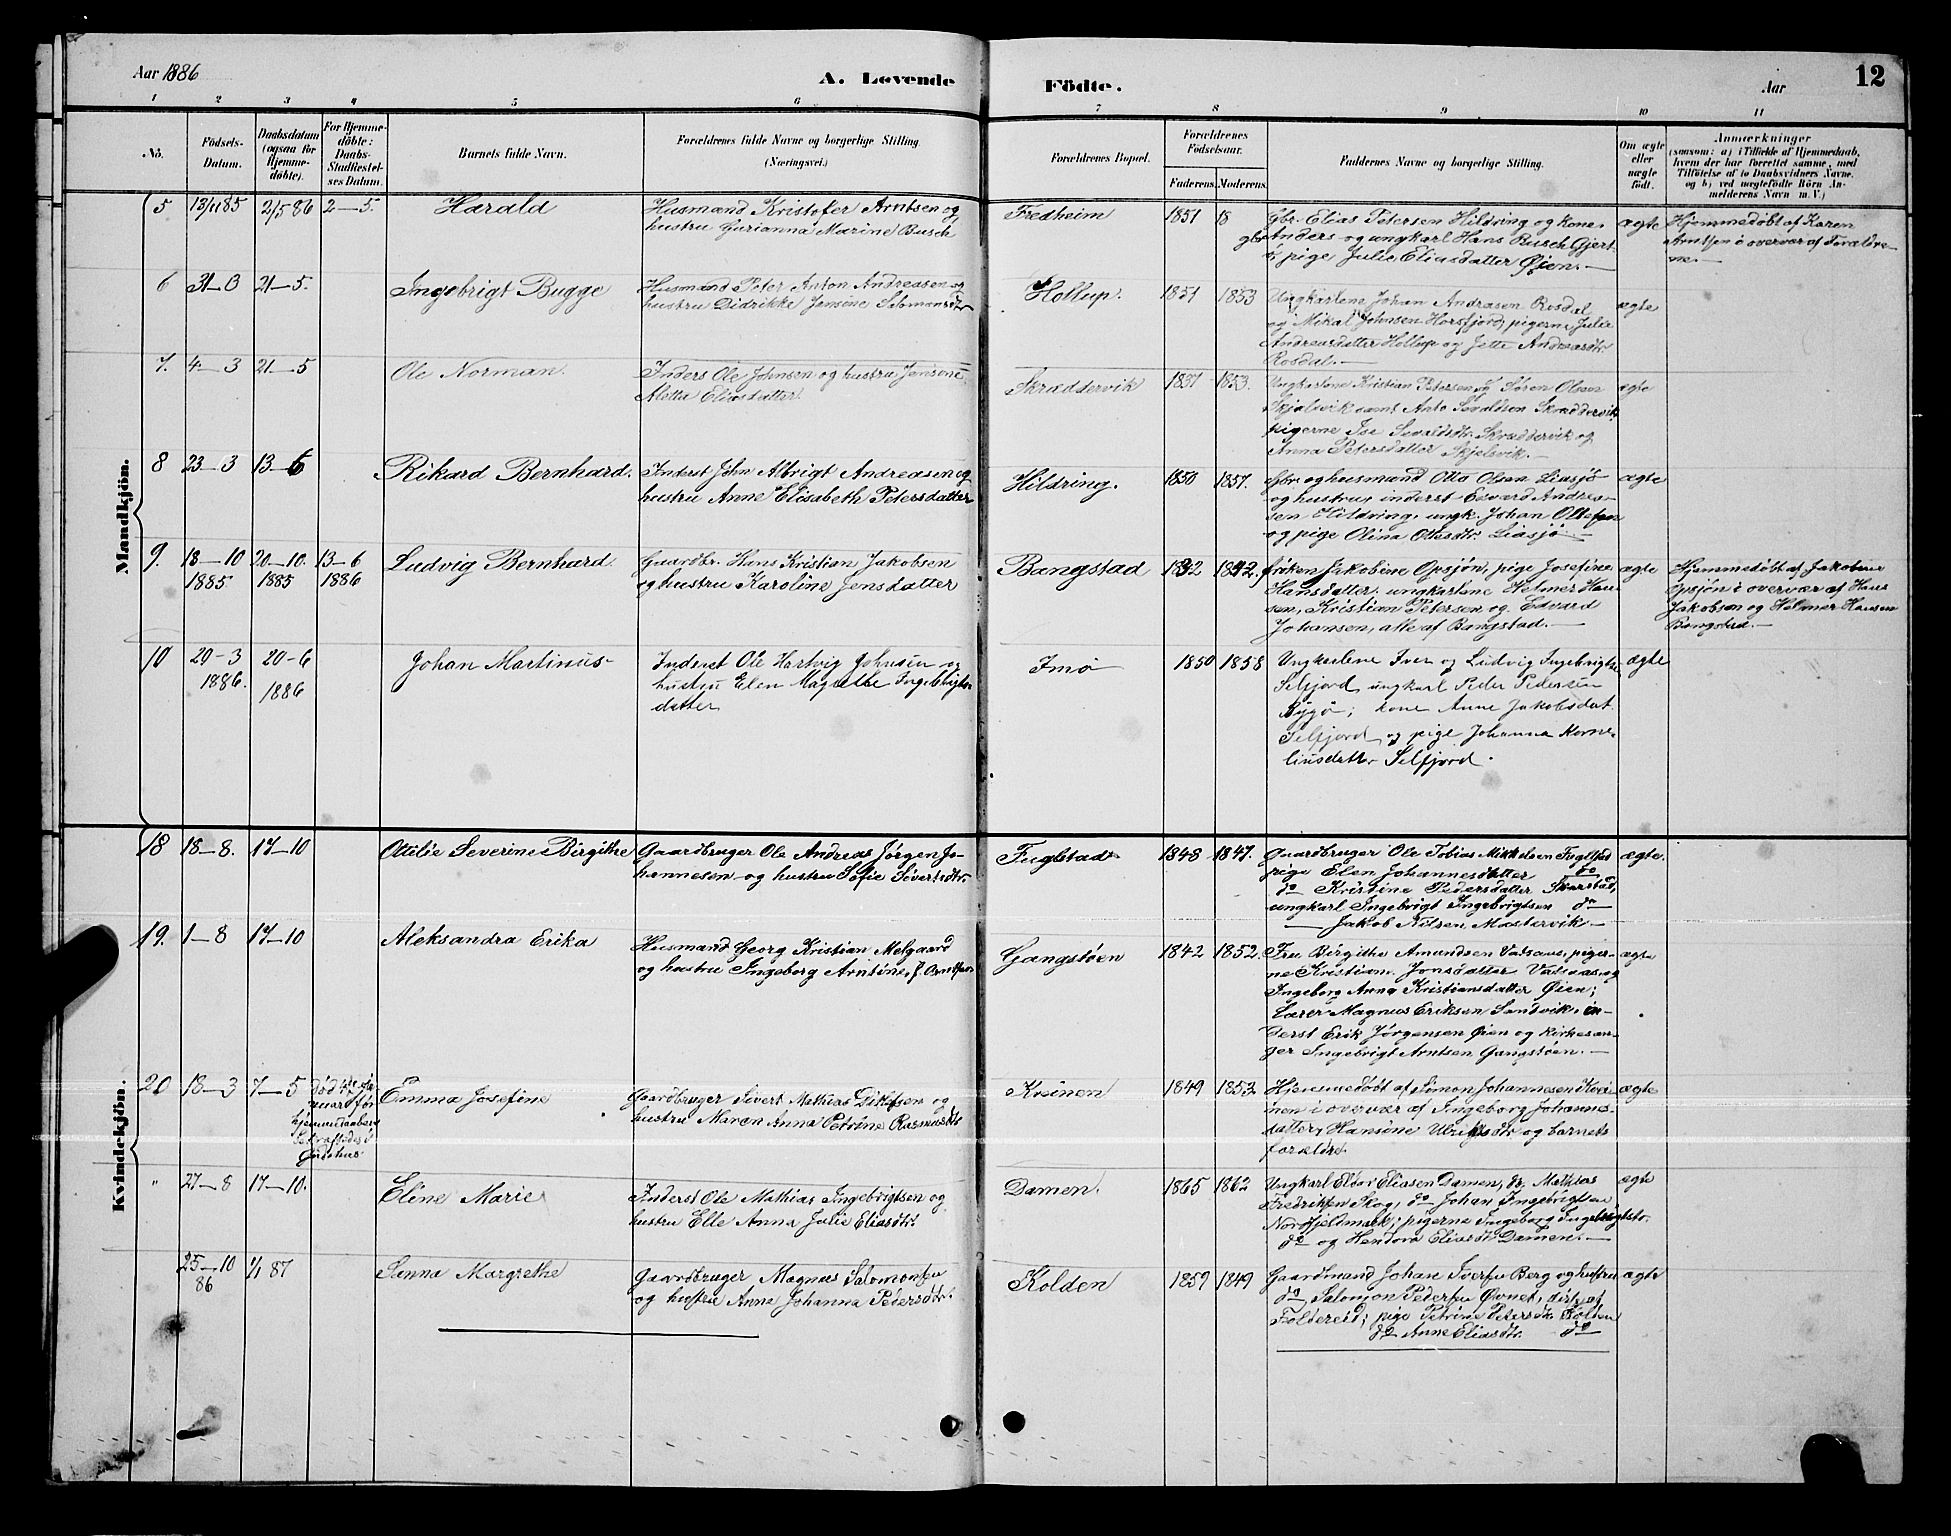 Aar 1886
A. Levende
Födte.
Aar
12
1 2 3 4 5 6 7 8 9 10 11
No.
Födsels-
Datum.
Daabsdatum
(ogsaa for
Hjemme-
döbte).
For Hjemme-
döbte:
Daabs-
Stadfæstel-
ses Datum.
Barnets fulde Navn.
Forældrenes fulde Navne og borgerlige Stilling.
(Næringsvei.)
Forældrenes Bopæl.
Forældrenes
Födselsaar.
Faderens.
Moderens.
Faddernes Navne og borgerlige Stilling.
Om ægte
eller
uægte
födt.
Anmærkninger
(saasom: a) i Tilfælde af Hjemmedaab,
hvem der har forrettet samme, med
Tilföielse af to Daabsvidners Navne.
og b) ved uægtefödte Börn An-
melderens Navn m. V.)
Mandkjön.
5 13/11 85 2/5 86 2–5. Harald
Husmand Kristofer Arntsen og
hustru Jurianna Marine Busch
Fredheim 1851 18
Gbr. Elias Petersen Hildring og kone
Anders og ungkarl Hans Busch Gjert
pige Julie Eliasdatter Øien.
ægte
Hjemmedøbt af Karen
Arntsen i overvær af Forældre-
ne.
6 31–3 21–5. Ingebrigt Bugge
Husmand Peter Anton Andreasen og
hustru Didrikke Jensine Salomonsdtr
Hollup. 1851 1853
Ungkarlene Johan Andreasen Rosdal
og Mikal Johnsen Horsfjord; pigerne Julie
Andreasdatter Hollup og Jette Andreasdtr
Rosdal.
ægte
7. 4–3 21–5 Ole Norman.
Inders Ole Johnsen og hustru Jensine
Aletta Eliasdatter.
Skræddervik 1851 1853.
Ungkarlene Kristian Petersen og Søren Olsen
Skjelsvik samt Anto Sevaldsen Skræddervik
pigerne Ise Sevaldsdtr. Skræddervik og
Anna Petersdatter Skjelsvik.
ægte
8 23–3 13–6 Rikard Bernhard.
Inderst John Albrigt Andreasen og
hustru Anne Elisabeth Petersdatter
Hildring. 1850 1857.
Gbr. og husmand Otto Olsen Liasjø
og hustru, inderst Edvard Andrea-
sen Hildring, ungk. Johan Ottesen
og pige Olina Ottesdtr. Liasjø
ægte
9. 18–10 1885 20–10. 1885 13–6 1886 Ludvig Bernhard.
Gaardbr. Hans Kristian Jakobsen
og hustru Karoline Jensdatter
Bangstad 1832 1842.
frøken Jakobine Opsjøn, pige Josefine
Hansdatter. ungkarlene Helmer Han-
sen, Kristian Petersen og Edvard
Johansen, alle af Bangstad.
ægte
Hjemmedøbt af Jakobine
Opsjøn i overvær af Hans
Jakobsen og Helmer Hansen
Bangstad.
10 29–3 1886. 20–6 1886 Johan Martinus
Inderst Ole Hartvig Johnsen og
hustru Elen Magrethe Ingebrigts-
datter
Imø 1850 1858
Ungkarlene Iver og Ludvig Ingebrigts
Selfjord, ungkarl Peder Pedersen
Bygø; kone Anne Jakobsdat.
Selfjord, og pige Johanna Korne-
liusdatter Selfjord.
ægte
Kvindekjön.
18 18–8. 17–10 Ottilie Severine Birgithe
Gaardbruger Ole Andreas Jørgen Jo-
hannesen og hustru Sofie Sivertsdtr.
Fuglstad 1848 1847.
Gaardbruger Ole Tobias Mikkelsen Fuglstad
pige Elen Johannesdatter do
do Kristine Pedersdatter Skarstad,
ungkarl Ingebrigt Ingebrigtsen do
Jakob Nilsen Mastervik
ægte.
19. 1–8 17–10 Aleksandra Erika
Husmand Georg Kristian Melgaard
og hustru Ingeborg Arntine, f. Arntsen
Gangstøen 1842 1852.
Fru Birgithe Amundsen Vadsaas, piger-
ne Kristian. Jonsdatter Vadsaas og
Ingeborg Anna Kristiansdatter Øien;
Lærer Magnus Eriksen Sandvik, in-
derst Erik Jørgensen Øien og kirkesan-
ger Ingebrigt Arntsen Gangstøen.
ægte
20 18–3 7–5
Emma Josefine
Gaardbruger Sivert Mathias Ditlefsen og
hustru Maren Anna Petrine Rasmusdtr
Kveinen 1849 1853
Hjemmedøbt af Simon Johannesen Kvei-
nen i overvær af Ingeborg Johannes-
datter, Hansine Ulriksdtr og barnets
forældre.
ægte
" 27–8 17–10. Eline Marie
Inderst Ole Mathias Ingebrigtsen og
hustru Elle Anna Julie Eliasdtr.
Damen. 1865 1862
Ungkarl Eldor Eliasen Damen, do Mathias
Fredriksen Skog, do Johan Ingebrigtsen
Nordfjeldmark; pigerne Ingeborg Ingebrigtsdtr.
do og Hendora Eliasdtr Damen.
ægte
25–10 86 1/1 87 Sanna Margrethe
Gaardbruger Magnus Salomonsen
og hustru Anne Johanna Pedersdtr.
Kolden 1859 1849
Gaardmand Johan Iversen Berg og hustru
do Salomon Pedersen Øvnet, dist. af
Foldereid; pige Petrine Petersdtr Kolden
do Anne Eliasdtr. do
ægte